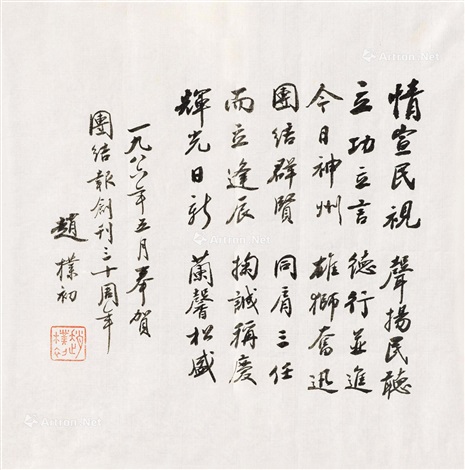 情宣民視 聲揚民聽
立功立言 德行並進
今日神州 雄獅奮迅
團結群賢 同肩三任
而立逢辰 掬誠稱慶
輝光日新 蘭馨松盛
一九八六年五月奉賀
團結報創刊三十周年
趙樸初
趙樸初
Artron.Net
Artron.Net
Artron.Net
Artron.Net